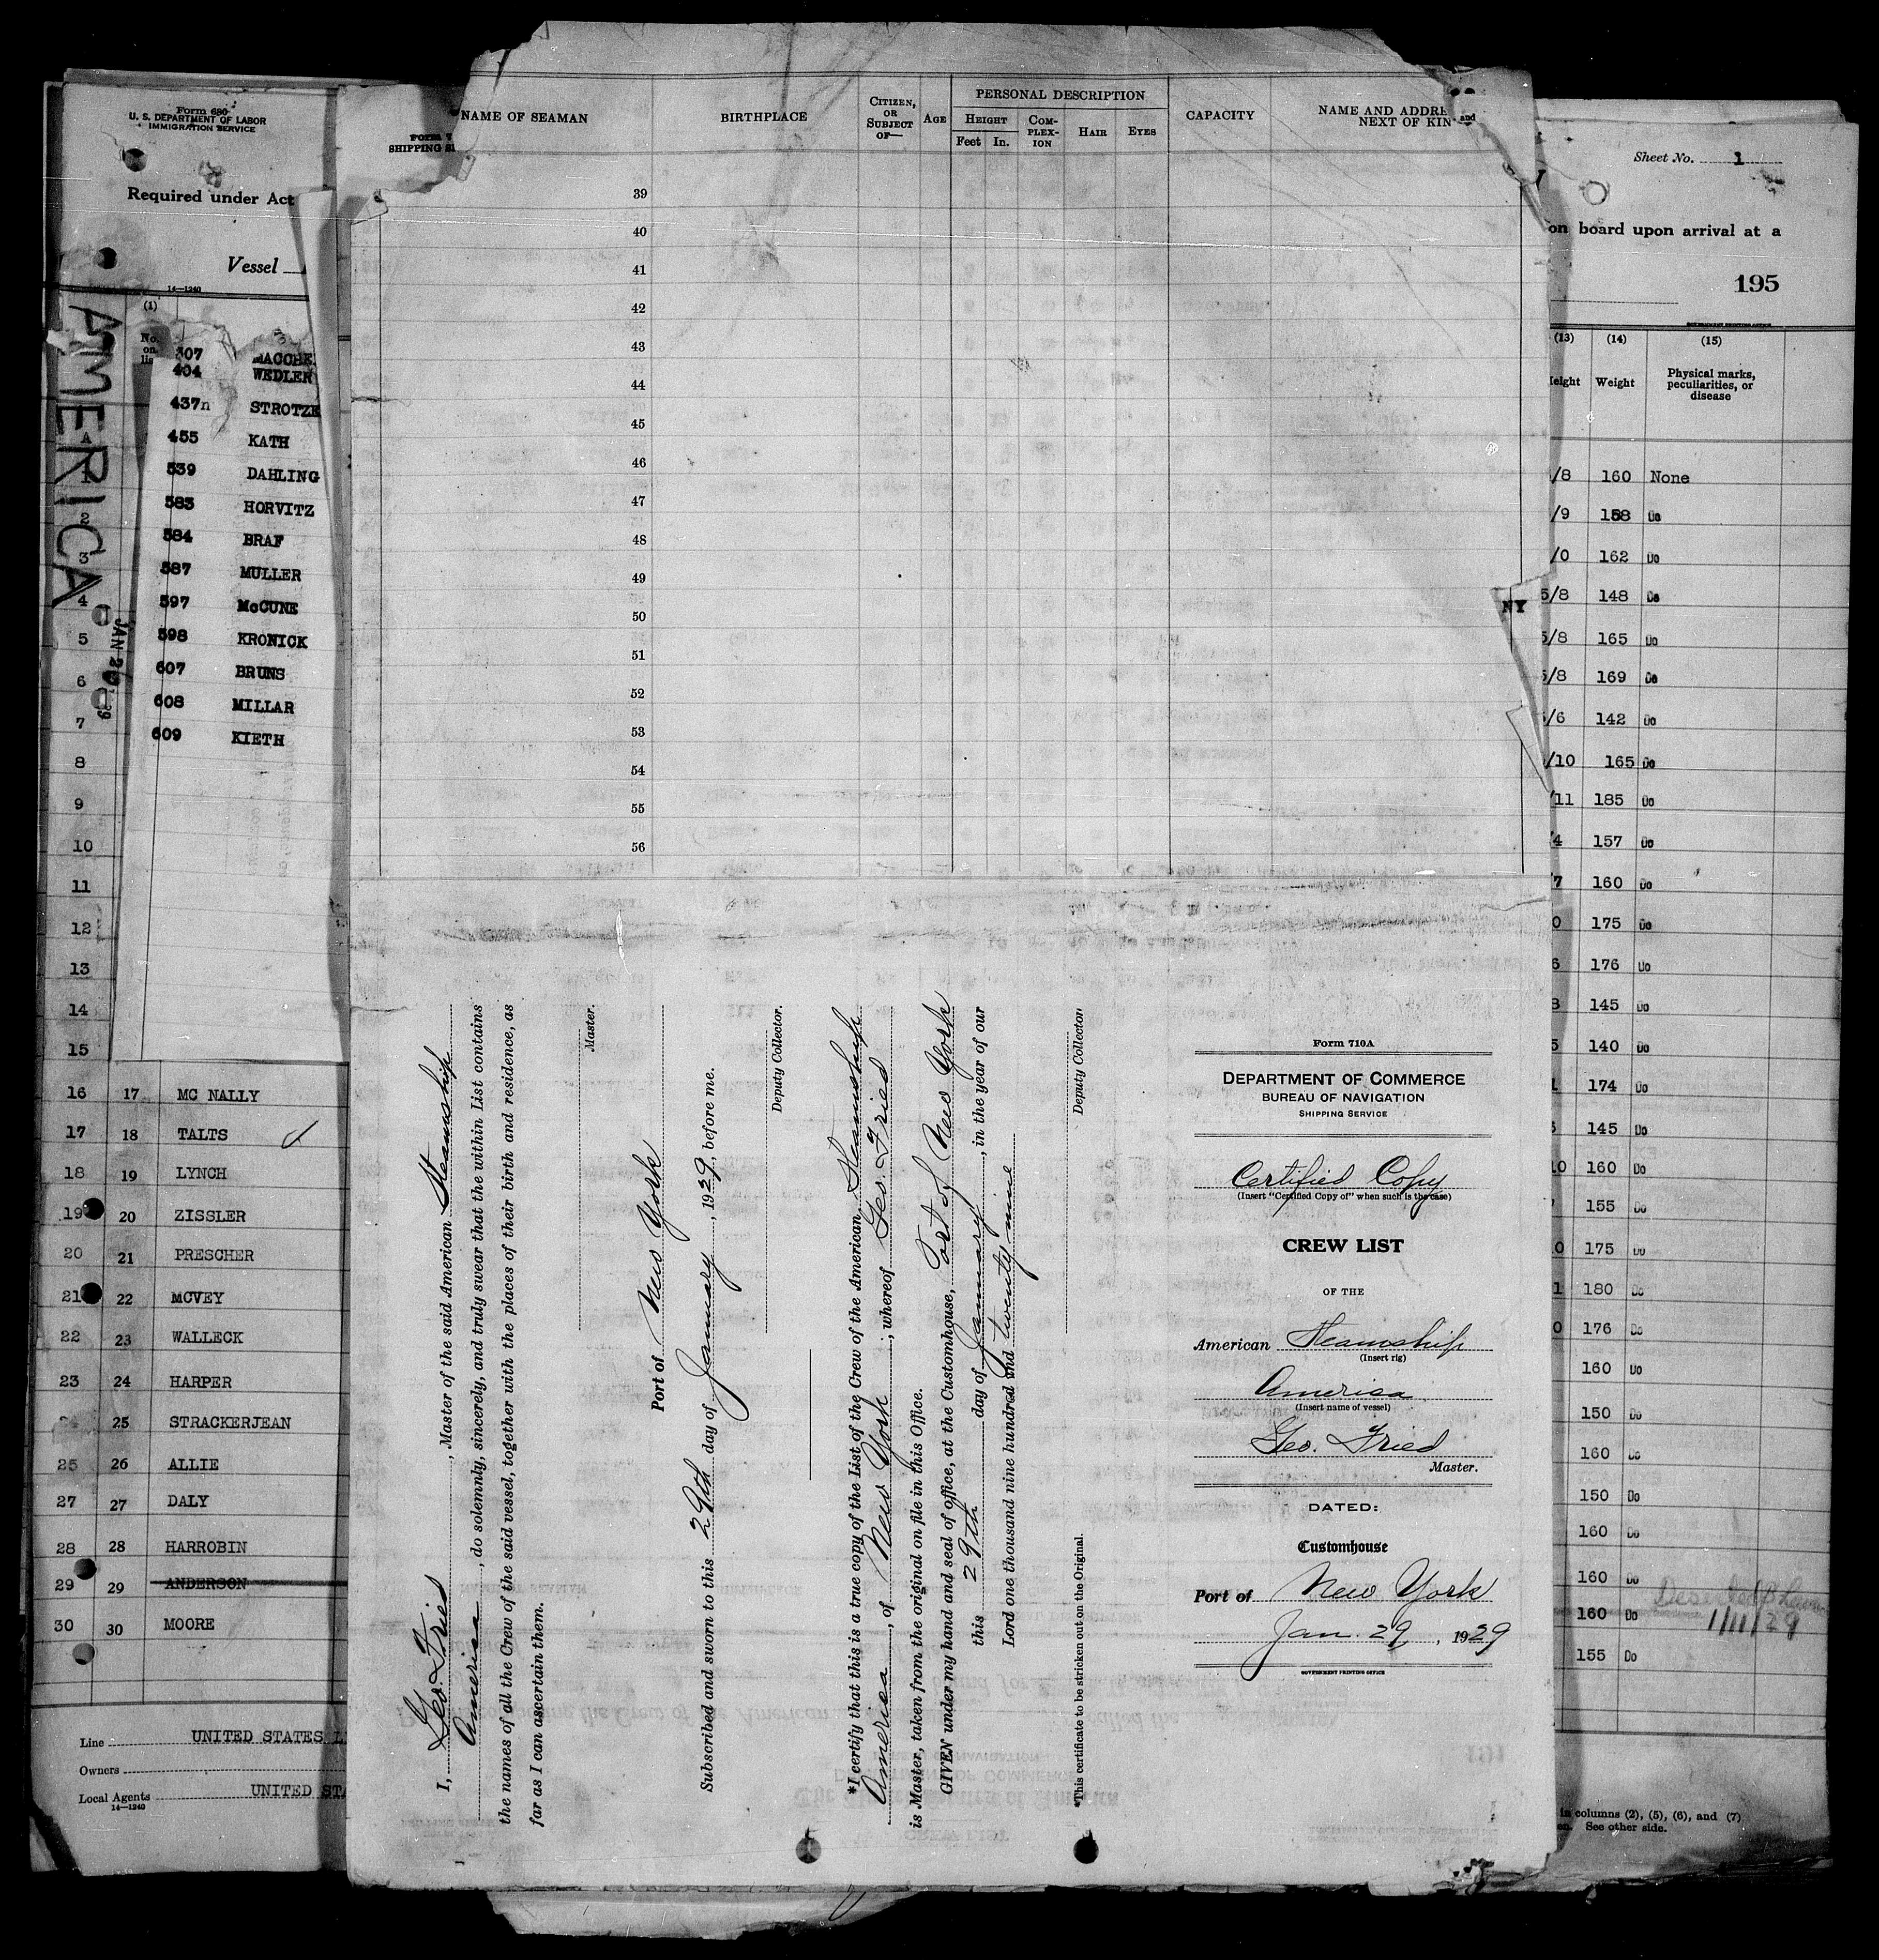 Form 680
U. S. DEPARTMENT OF LABOR
IMMIGRATION SERVICE
Required under Act
Vessel
14—1240
(1)
No.
on
lis
AMERICA
307 MACCHE
404 WEDLER
437n STROTZE
A
455 KATH
1
539 DAHLING
583 HORVITZ
2
584 BRAF
3
587 MULLER
4
597 McCUNE
5
598 KRONICK
6
607 BRUNS
608 MILLAR
7
609 KIETH
8
9
10
11
12
13
14
15
16 17 MC NALLY
17 18 TALTS
18 19 LYNCH
19 20 ZISSLER
20 21 PRESCHER
21 22 MCVEY
22 23 WALLECK
23 24 HARPER
25 STRACKERJEAN
25 26 ALLIE
27 27 DALY
28 28 HARROBIN
29 29 ANDERSON
30 30 MOORE
Line UNITED STATES L
Owners
Local Agents UNITED STA
14—1240
SHIPPING
NAME OF SEAMAN
BIRTHPLACE
CITIZEN, OR SUBJECT OF—
AGE
PERSONAL DESCRIPTION
HEIGHT
Feet In.
COM-PLEX-ION
HAIR
EYES
CAPACITY
NAME AND ADDRE
NEXT OF KIN and
39
40
41
42
43
44
45
46
47
48
49
50
51
52
53
54
55
56
I, Geo. Fried, Master of the said American Steamship
America, do solemnly, sincerely, and truly swear that the within List contains
the names of all the Crew of the said vessel, together with the places of their birth and residence, as
far as I can ascertain them.
Master.
Port of New York
Subscribed and sworn to this 29th day of January, 1929, before me.
Deputy Collector.
*I certify that this is a true copy of the List of the Crew of the American Steamship
America, of New York; whereof Geo. Fried
is Master, taken from the original on file in this Office.
GIVEN under my hand and seal of office, at the Customhouse, Port of New York
this 29th day of January, in the year of our
Lord one thousand nine hundred and twenty nine
Deputy Collector.
*This certificate to be stricken out on the Original.
Form 710A
DEPARTMENT OF COMMERCE
BUREAU OF NAVIGATION
SHIPPING SERVICE
Certified Copy
(Insert "Certified Copy of" when such is the case)
CREW LIST
OF THE
American Steamship
(Insert rig)
America
(Insert name of vessel)
Geo. Fried
Master.
DATED:
Customhouse
Port of New York
Jan. 29, 1929
GOVERNMENT PRINTING OFFICE
Sheet No. 1
on board upon arrival at a
195
GOVERNMENT PRINTING OFFICE
(13) (14) (15)
eight Weight Physical marks, peculiarities, or disease
/8 160 None
/9 158 Do
/0 162 Do
NY
5/8 148 Do
5/8 165 Do
5/8 169 Do
/6 142 Do
/10 165 Do
/11 185 Do
4 157 Do
7 160 Do
0 175 Do
6 176 Do
8 145 Do
5 140 Do
1 174 Do
145 Do
10 160 Do
155 Do
0 175 Do
1 180 Do
0 176 Do
160 Do
150 Do
160 Do
150 Do
160 Do
160 Do
160 Do
1/11/29
155 Do
in columns (2), (5), (6), and (7)
See other side.